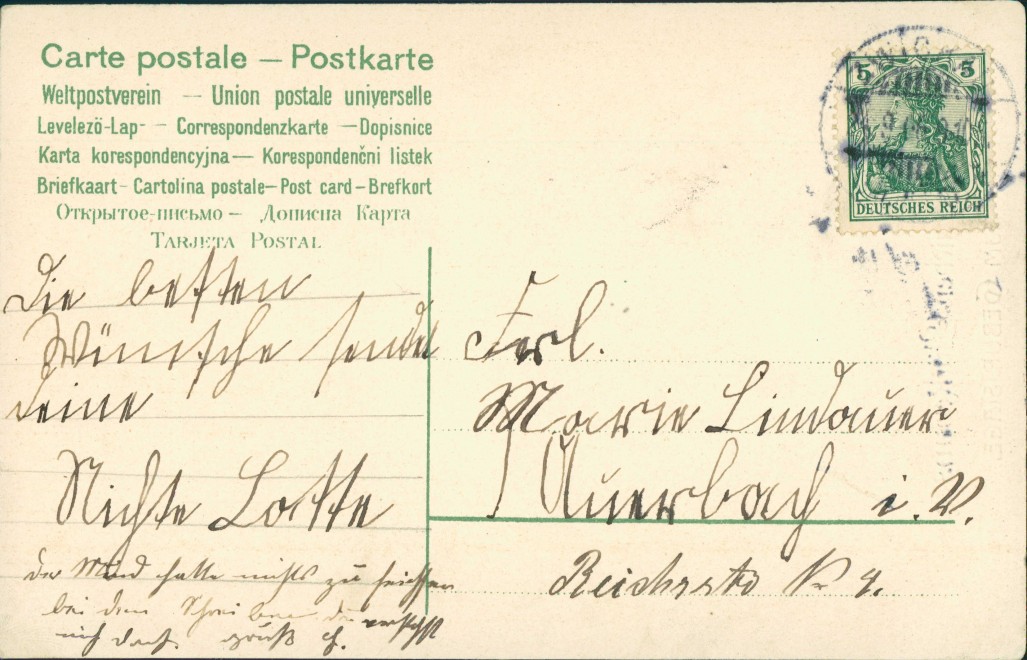 Carte postale — Postkarte
Weltpostverein — Union postale universelle
Levelezö-Lap- — Correspondenzkarte — Dopisnice
Karta korespondencyjna — Korespondenčni listek
Briefkaart - Cartolina postale - Post card - Brefkort
Открытое-письмо — Дописна Карта
TARJETA POSTAL
5 5
DEUTSCHES REICH
Die besten
Wünsche sendet
Deine
Nichte Lotte
der Mund hatte nichts zu
bei dem Schreiben
gruß
Frl.
Marie Lindauer
Auerbach i. V.